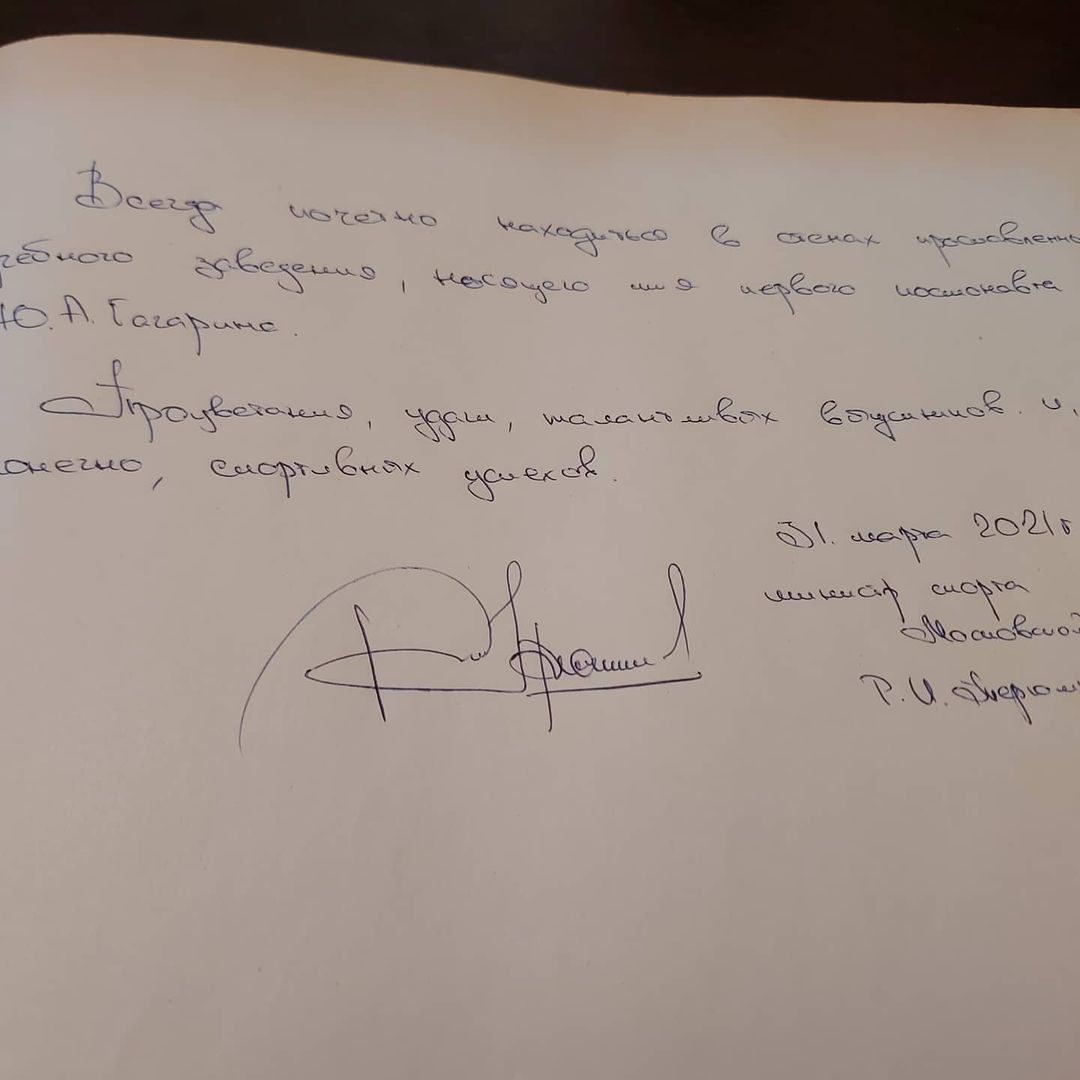 Всегда почетно находиться в стенах прославленно
чебного заведения, носящего имя первого космонавта
Ю. А. Гагарина.
Процветания, удачи, талантливых выпускников и,
онечно, спортивных успехов.
31 марта 2021 г
министр спорта
Московской
Р. И. Терюш